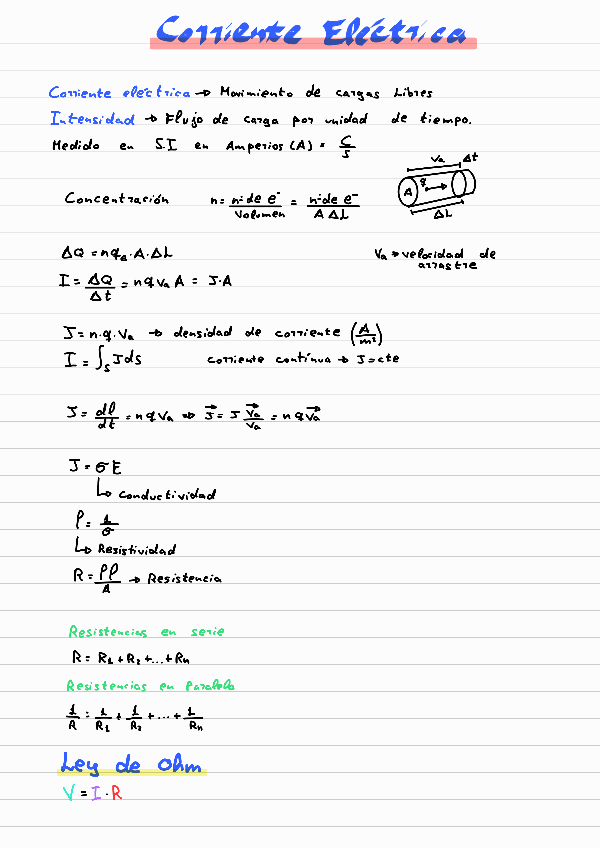 Corriente Eléctrica
Corriente eléctrica → Movimiento de cargas Libres
Intensidad → Flujo de carga por unidad de tiempo.
Medido en S.I en Amperios (A) = C/s
Va Δt
A q
ΔL
Concentración n = nº de e⁻/Volumen = nº de e⁻/A ΔL
ΔQ = n q_a · A · ΔL
Va → velocidad de arrastre
I = ΔQ/Δt = n q Va A = J·A
J = n·q·Va → densidad de corriente (A/m²)
I = ∫_S J ds corriente contínua → J = cte
J = dl/dt = n q Va ⇒ J⃗ = J V⃗a/Va = n q V⃗a
J = σ E
↳ Conductividad
ρ = 1/σ
↳ Resistividad
R = ρl/A → Resistencia
Resistencias en serie
R = R₁ + R₂ + ... + Rn
Resistencias en Paralelo
1/R = 1/R₁ + 1/R₂ + ... + 1/Rn
Ley de Ohm
V = I · R